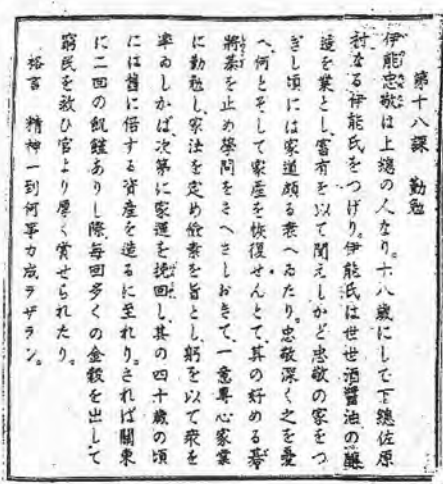 第十八課　勤勉
伊能忠敬は上總の人なり。十八歳にして下總佐原
村なる伊能氏をつげり。伊能氏は世世酒醤油の釀
造を業とし、富有を以て聞えしかど忠敬の家をつ
ぎし頃には家道頗る衰へゐたり。忠敬深く之を憂
へ、何とぞして家産を恢復せんとて、其の好める碁
將棊を止め學問をさへさしおきて、一意專心家業
に勤勉し、家法を定め儉素を旨とし、躬を以て衆を
率ゐしかば、次第に家運を挽回し、其の四十歳の頃
には舊に倍する資産を造るに至れり。されば關東
に二回の飢饉ありし際毎回多くの金穀を出して
窮民を救ひ官より厚く賞せられたり。
格言　精神一到何事カ成ラザラン。